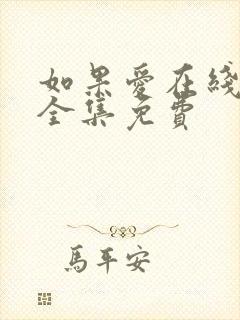 如果愛在綫
全集免費
馬平安